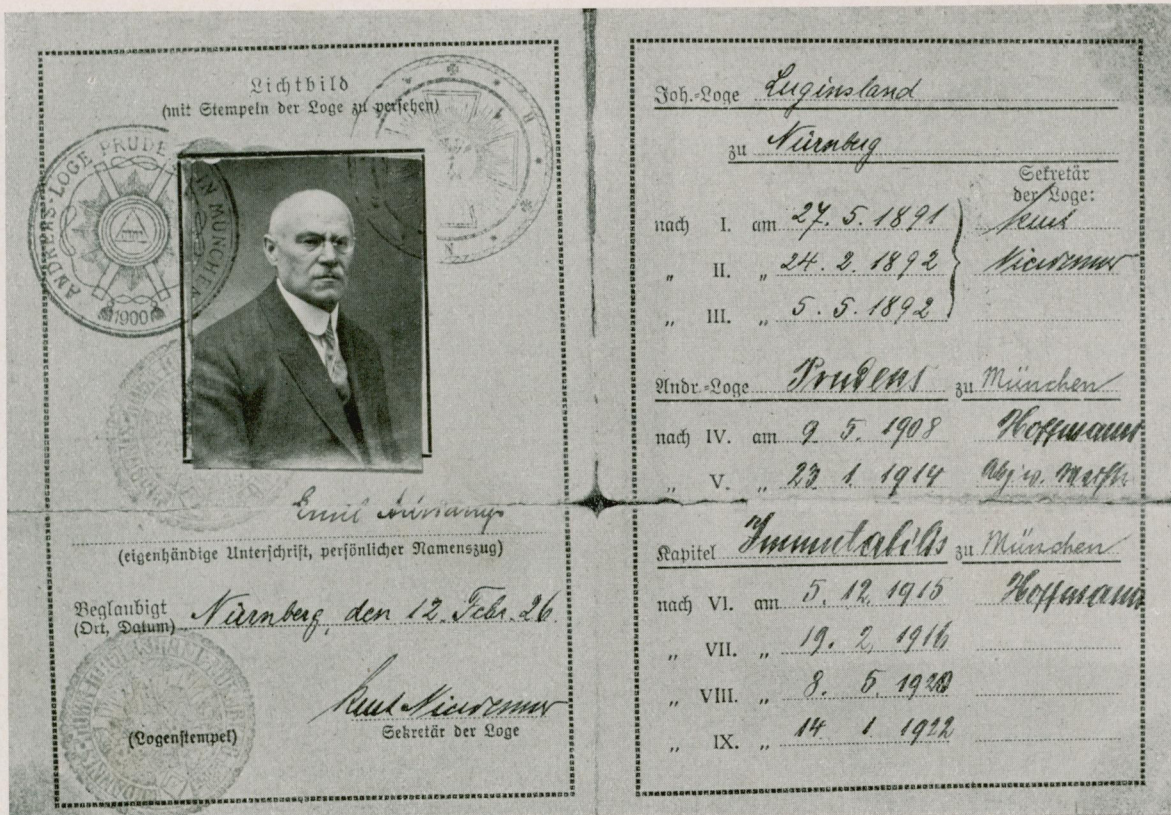 Lichtbild
(mit Stempeln der Loge zu versehen)
ANDREAS-LOGE PRUDE IN MÜNCHEN
1900
Emil
(eigenhändige Unterschrift, persönlicher Namenszug)
Beglaubigt
(Ort, Datum) Nürnberg, den 12. Febr. 26.
(Logenstempel)
Sekretär der Loge
Joh.-Loge Luginsland
zu Nürnberg
Sekretär
der Loge:
nach I. am 27. 5. 1891
„ II. „ 24. 2. 1892
„ III. „ 5. 5. 1892
Andr.-Loge Prudens zu München
nach IV. am 9. 5. 1908 Hoffmann
„ V. „ 23. 1. 1914
Kapitel Immutabilis zu München
nach VI. am 5. 12. 1915 Hoffmann
„ VII. „ 19. 2. 1916
„ VIII. „ 8. 5.
„ IX. „ 14 1. 1922